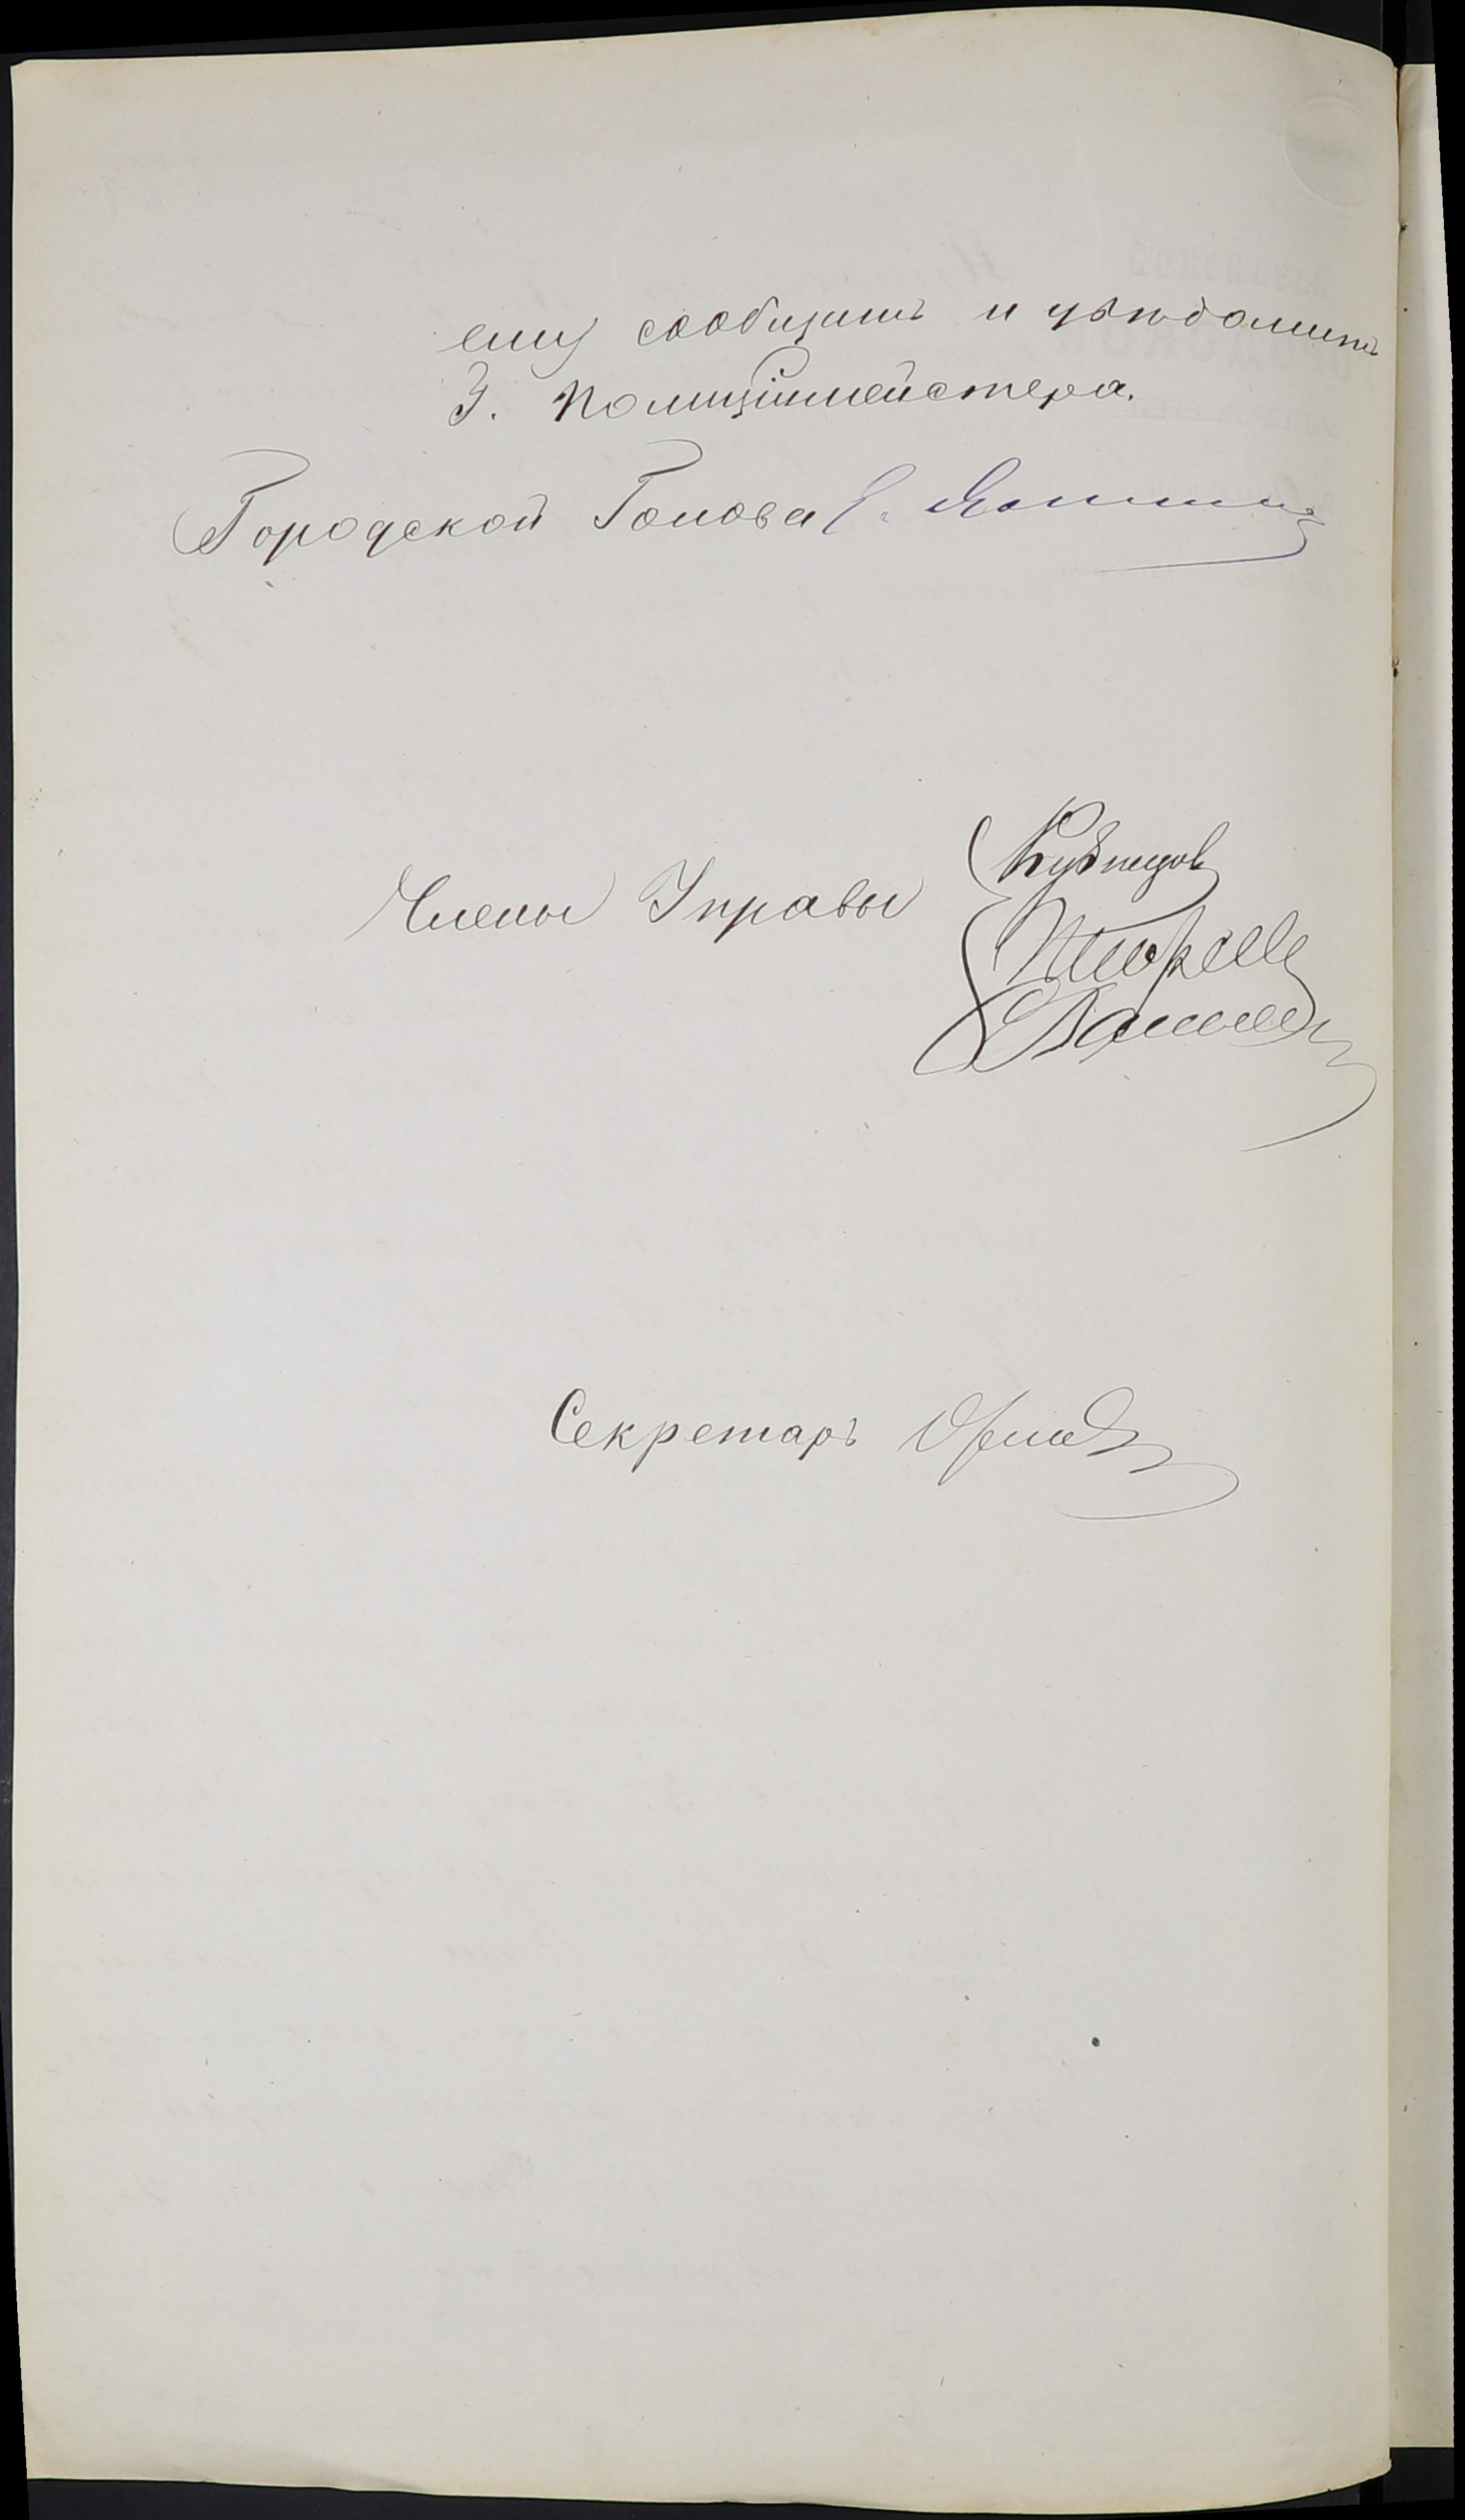 ему сообщить и увѣдомить
Г. Полиціймейстера.
Городской Голова
Члены Управы
Кузнецов
Секретарь